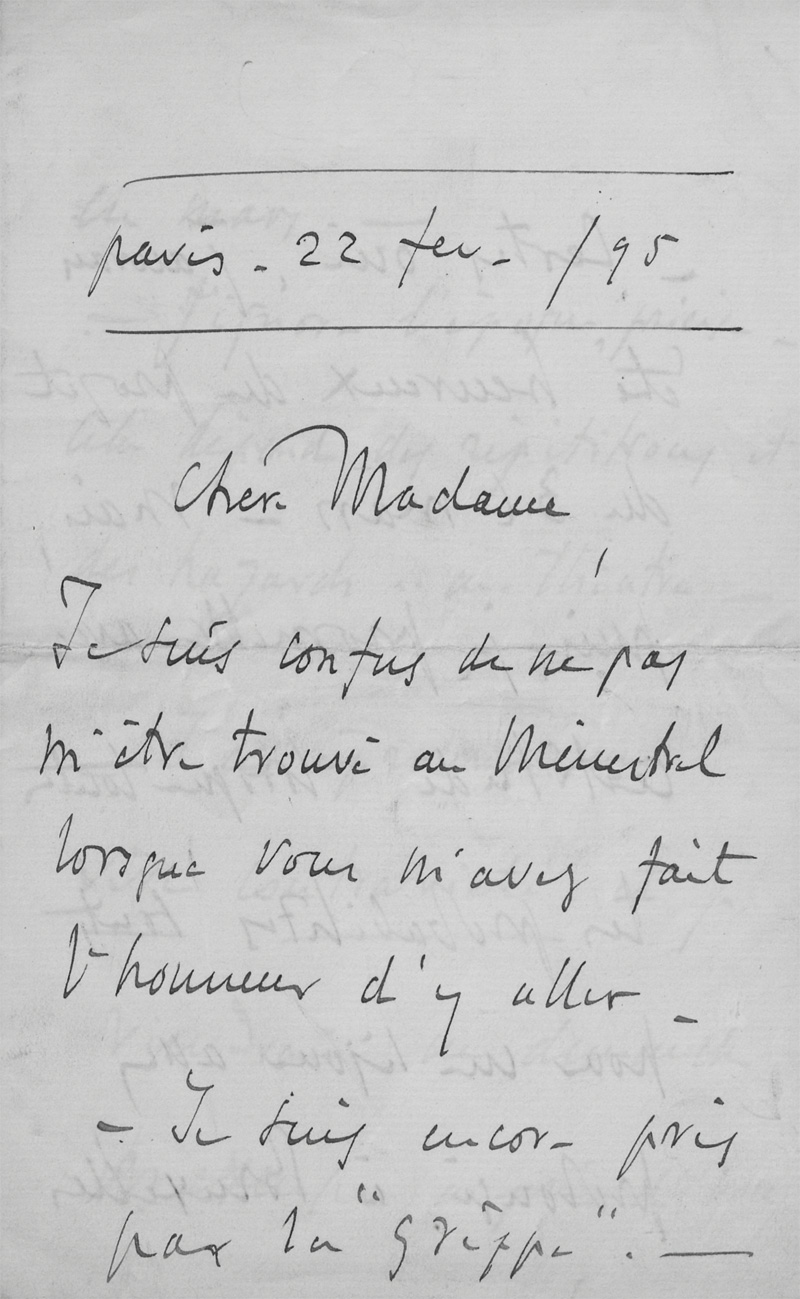 paris - 22 fev - /95
Chère Madame,
Je suis confus de ne pas
m'être trouvé au Ménestrel
lorsque vous m'avez fait
l'honneur d'y aller -
- Je suis encore pris
par la "Grippe". —